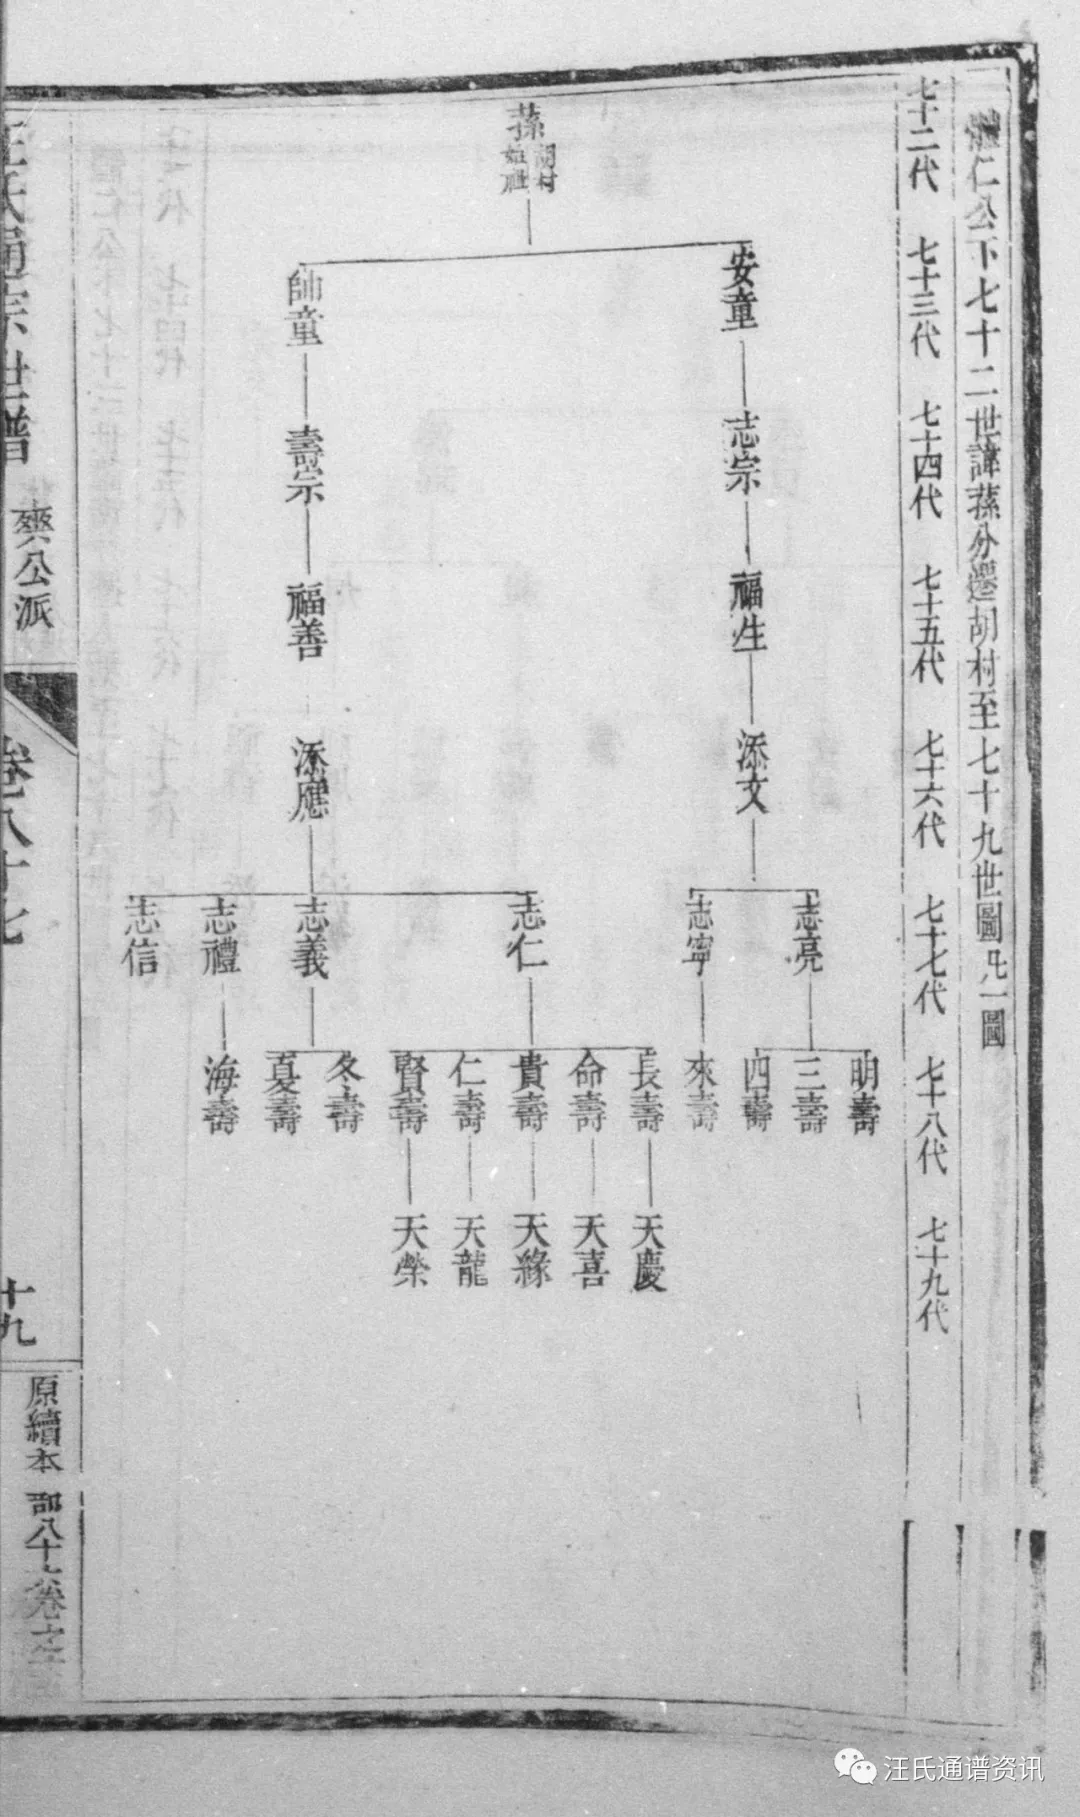 體仁公下七十二世諱蓀分遷胡村至七十九世圖凡一圖
七十二代 七十三代 七十四代 七十五代 七十六代 七十七代 七十八代 七十九代
蓀 胡村 始遷
安童 師童
志宗 壽宗
福生 福善
添文 添應
志亮 志寧 志仁 志義 志禮 志信
明壽 三壽 四壽 來壽 長壽 命壽 貴壽 仁壽 賢壽 冬壽 夏壽 海壽
天慶 天喜 天緣 天龍 天榮
汪氏通宗世譜
爽公派
卷八十七
十九
原續本
汪氏通谱资讯